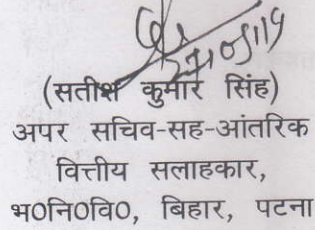 (सतीश कुमार सिंह)
अपर सचिव-सह-आंतरिक
वित्तीय सलाहकार,
भ0नि0वि0, बिहार, पटना